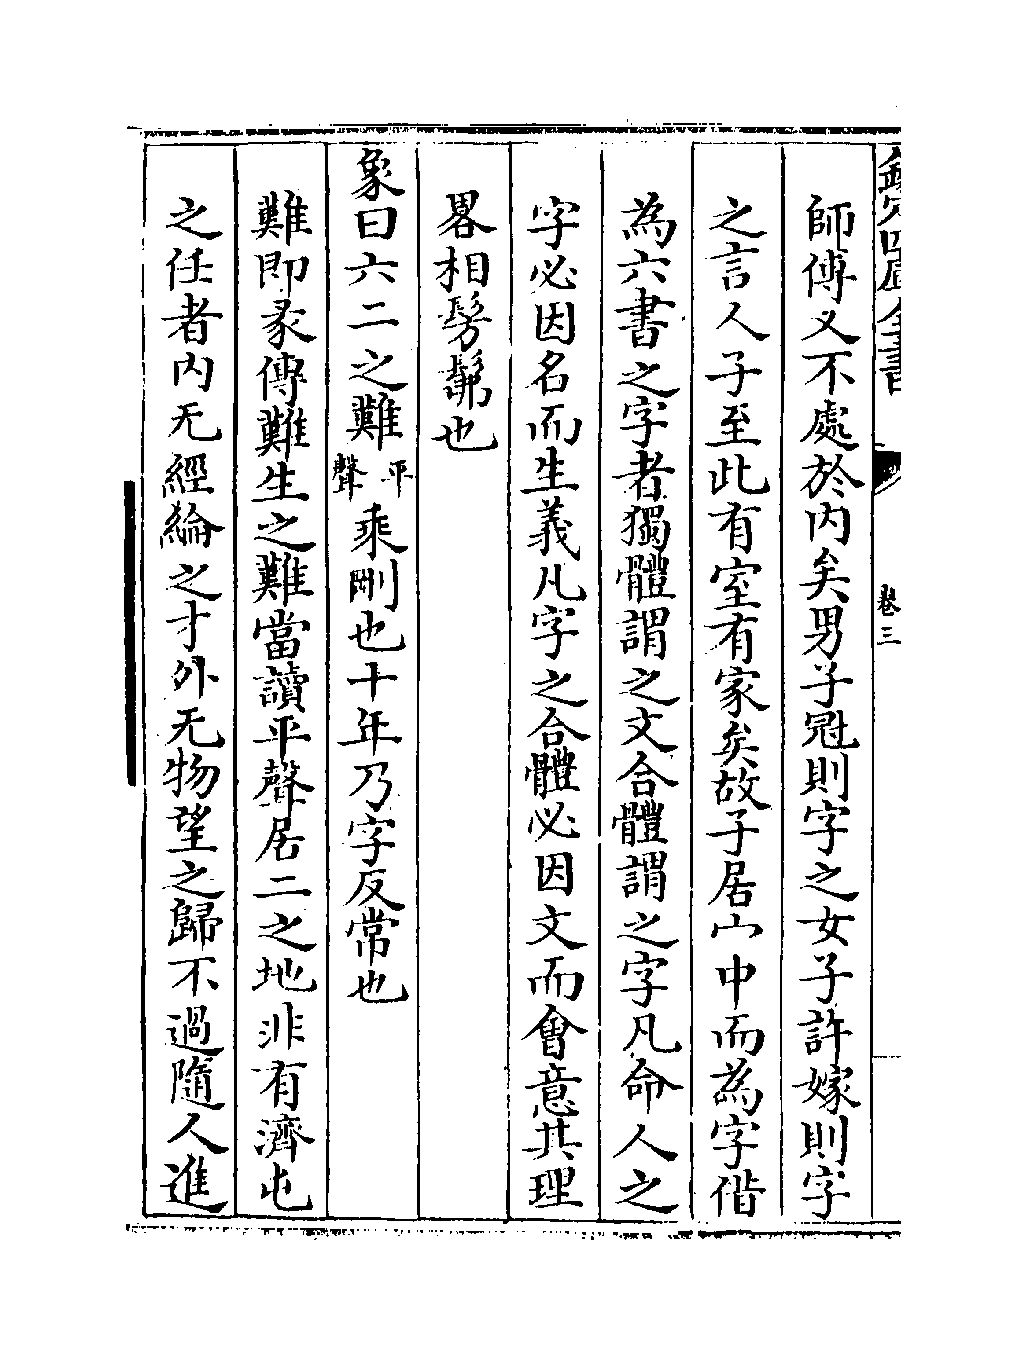 欽定四庫全書
卷三
師傅又不處於内矣男子冠則字之女子許嫁則字
之言人子至此有室有家矣故子居宀中而為字偕
為六書之字者獨體謂之文合體謂之字凡命人之
字必因名而生義凡字之合體必因文而會意其理
畧相髣髴也
象曰六二之難平聲乘剛也十年乃字反常也
難即彖傳難生之難當讀平聲居二之地非有濟屯
之任者内无經綸之才外无物望之歸不過隨人進